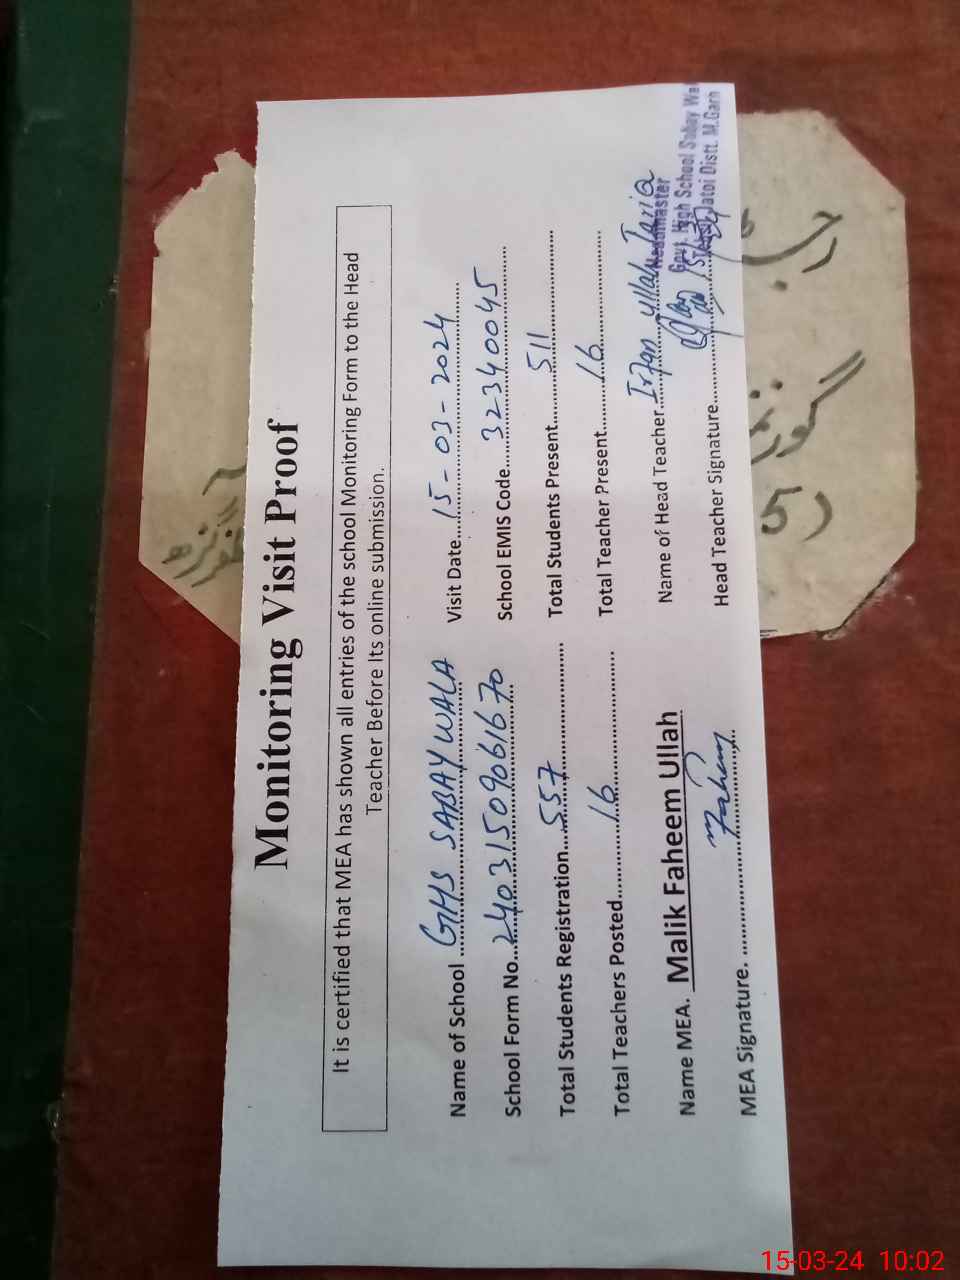 Monitoring Visit Proof
It is certified that MEA has shown all entries of the school Monitoring Form to the Head
Teacher Before Its online submission.
Name of School GHS SABAYWALA Visit Date 15-03-2024
School Form No 2403150961670 School EMIS Code 32340045
Total Students Registration 557 Total Students Present 511
Total Teachers Posted 16 Total Teacher Present 16
Name MEA. Malik Faheem Ullah Name of Head Teacher Irfan Ullah Tariq
MEA Signature. Faheem Head Teacher Signature
Headmaster
Govt. High School Sabay Wa
Tehsil Jatoi Distt. M.Garh
15-03-24 10:02